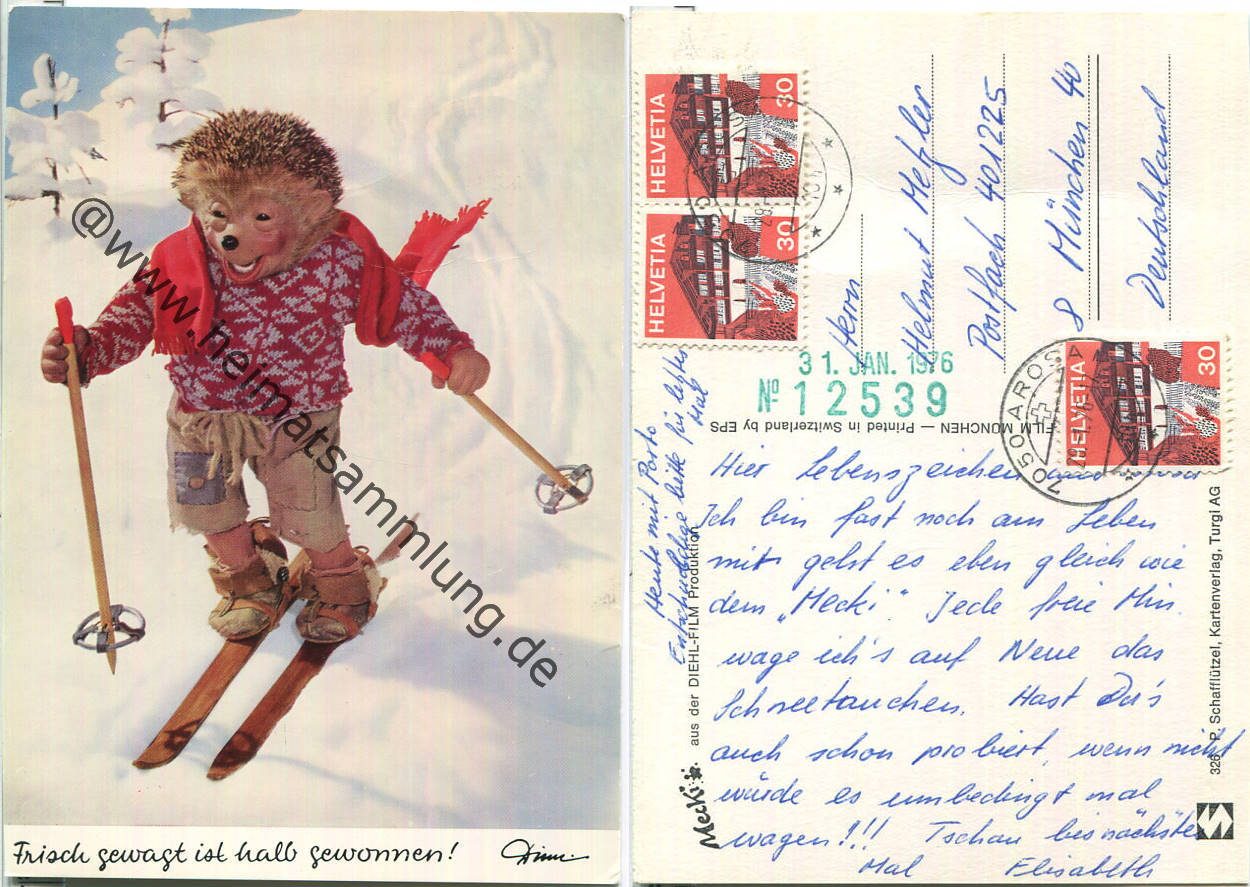 @www.heimatsammlung.de
Frisch gewagt ist halb gewonnen!
HELVETIA 30
HELVETIA 30
HELVETIA 30
7050 AROSA
Herrn
Helmut Metzler
Postfach 401225
8 München 40
Deutschland
31. JAN. 1976
No 12539
FILM MÜNCHEN — Printed in Switzerland by EPS
Heute mit Porto
Entschuldige bitte für letztes
Mal
Hier Lebenszeichen aus Arosa
Ich bin fast noch am Leben
mir geht es eben gleich wie
dem „Mecki". Jede freie Min.
wage ich's auf Neue das
Schneetauchen. Hast Du's
auch schon probiert, wenn nicht
würde es umbedingt mal
wagen!!! Tschau bis nächstes
Mal Elisabeth
Mecki
aus der DIEHL-FILM Produktion
326 P. Schafflützel, Kartenverlag, Turgi AG